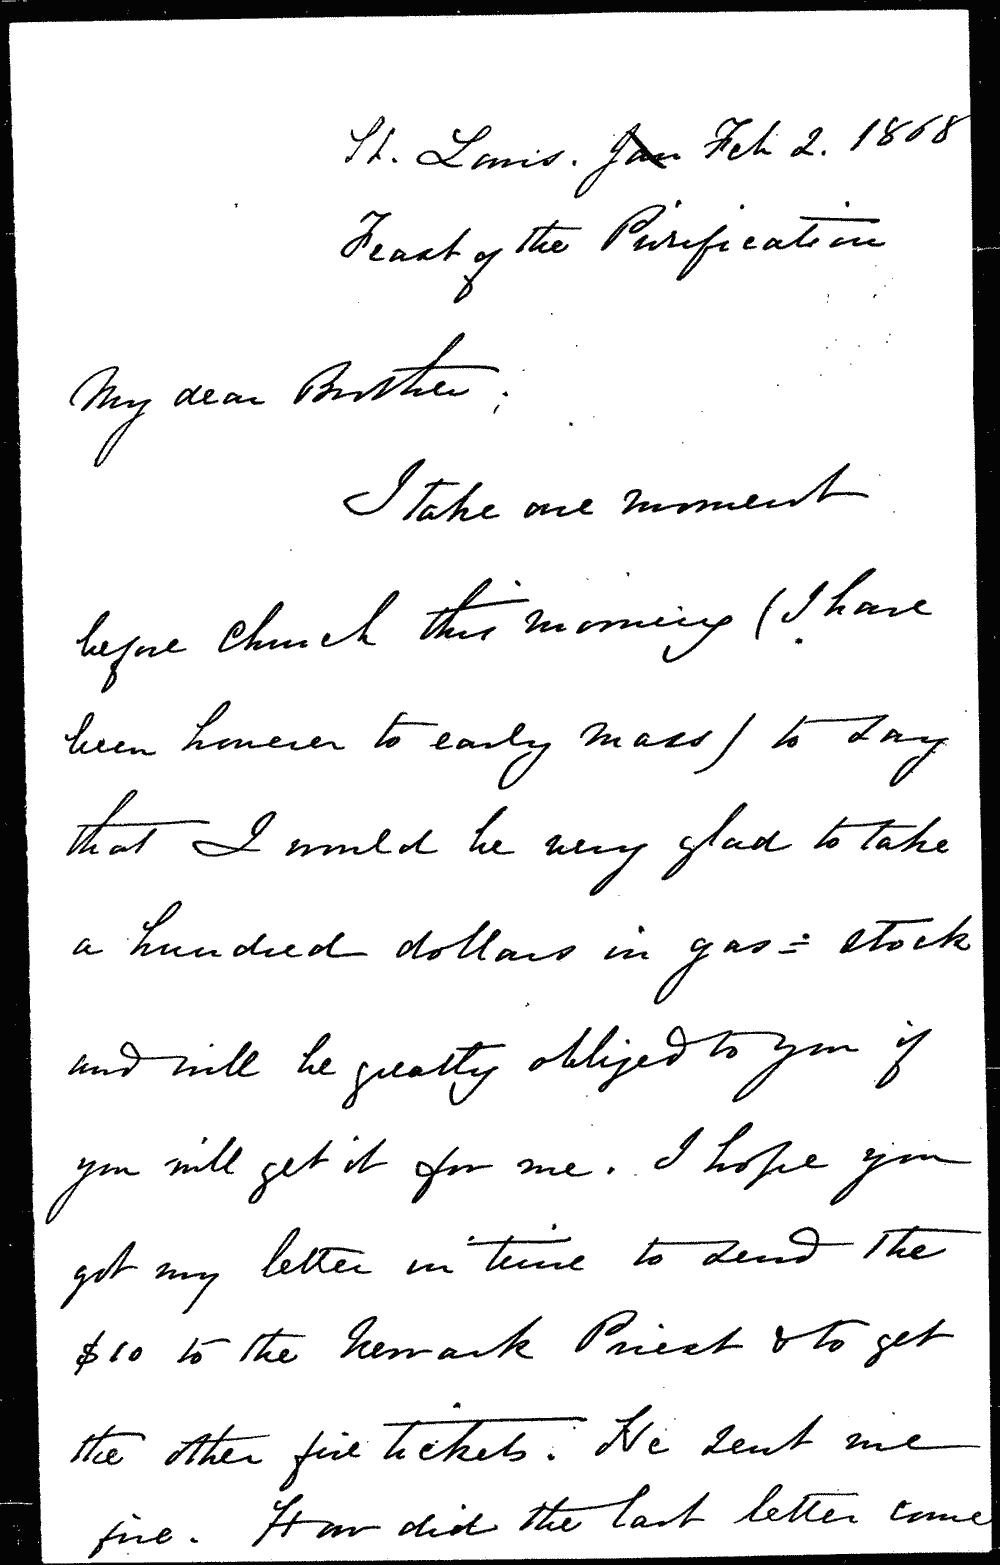 St. Louis. Jan Feb 2. 1868
Feast of the Purification
My dear Brother;
I take one moment
before Church this morning (I have
been however to early mass) to say
that I would be very glad to take
a hundred dollars in gas = stock
and will be greatly obliged to you if
you will get it for me. I hope you
got my letter in time to send the
$10 to the Newark Priest & to get
the other five tickets. He sent me
five. How did the last letter come